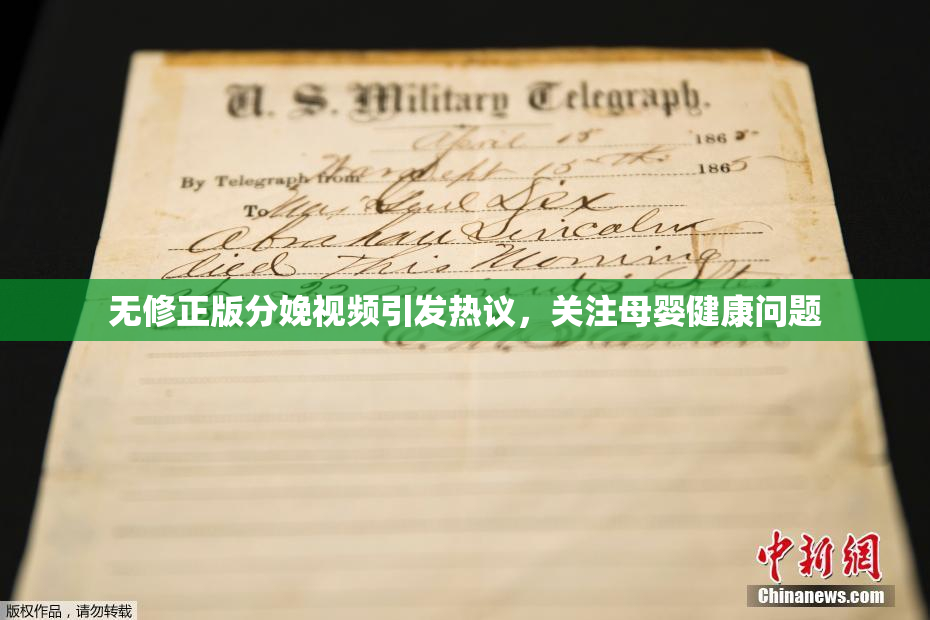 U. S. Military Telegraph.
April 15 1865
By Telegraph from War Dept 15th 1865
To Maj Genl Dix
Abraham Lincoln
died this Morning
at 22 minutes after
无修正版分娩视频引发热议，关注母婴健康问题
E. M. Stanton
中新网
Chinanews.com
版权作品，请勿转载